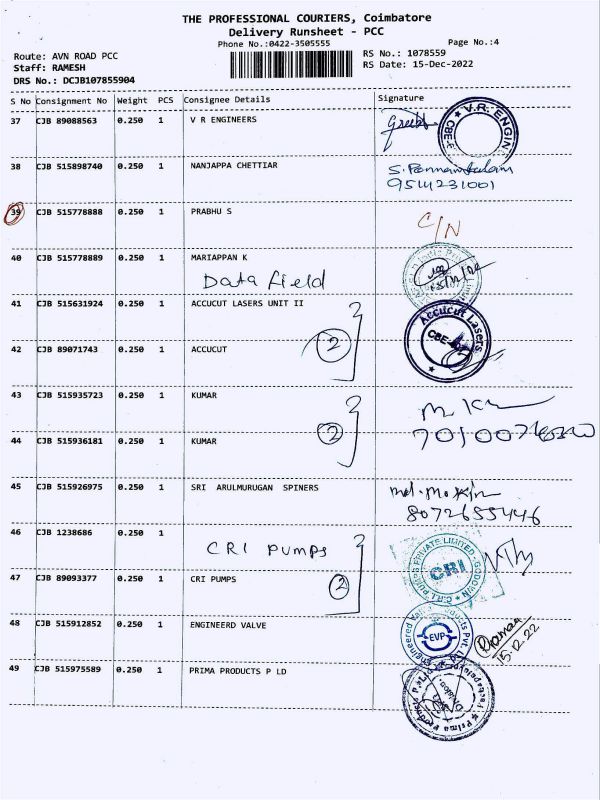 THE PROFESSIONAL COURIERS, Coimbatore
Delivery Runsheet - PCC
Phone No.:0422-3505555
Page No.:4
Route: AVN ROAD PCC
RS No.: 1078559
Staff: RAMESH
RS Date: 15-Dec-2022
DRS No.: DCJB107855904
S No Consignment No Weight PCS Consignee Details Signature
37 CJB 89088563 0.250 1 V R ENGINEERS
V.R. ENGIN
CBE-
38 CJB 515898740 0.250 1 NANJAPPA CHETTIAR
9514231001
39 CJB 515778888 0.250 1 PRABHU S
C/N
40 CJB 515778889 0.250 1 MARIAPPAN K
Data field
41 CJB 515631924 0.250 1 ACCUCUT LASERS UNIT II
Accucut Lasers
CBE-
42 CJB 89071743 0.250 1 ACCUCUT
2
43 CJB 515935723 0.250 1 KUMAR
2
44 CJB 515936181 0.250 1 KUMAR
45 CJB 515926975 0.250 1 SRI ARULMURUGAN SPINERS
8072655446
46 CJB 1238686 0.250 1
CRI PUMPS
C.R.I. PUMPS PRIVATE LIMITED - GODOWN
CRI
47 CJB 89093377 0.250 1 CRI PUMPS
2
48 CJB 515912852 0.250 1 ENGINEERD VALVE
EVP
15.12.22
49 CJB 515975589 0.250 1 PRIMA PRODUCTS P LD